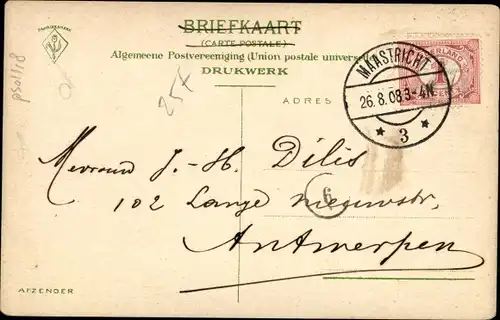 BRIEFKAART
(CARTE POSTALE)
Algemeene Postvereeniging (Union postale universelle)
DRUKWERK
MAASTRICHT
26.8.08 3-4N
3
25x
ps01118
ADRES
Mevrouw J.-H. Dilis
6
102 Lange nieuwstr,
Antwerpen
AFZENDER